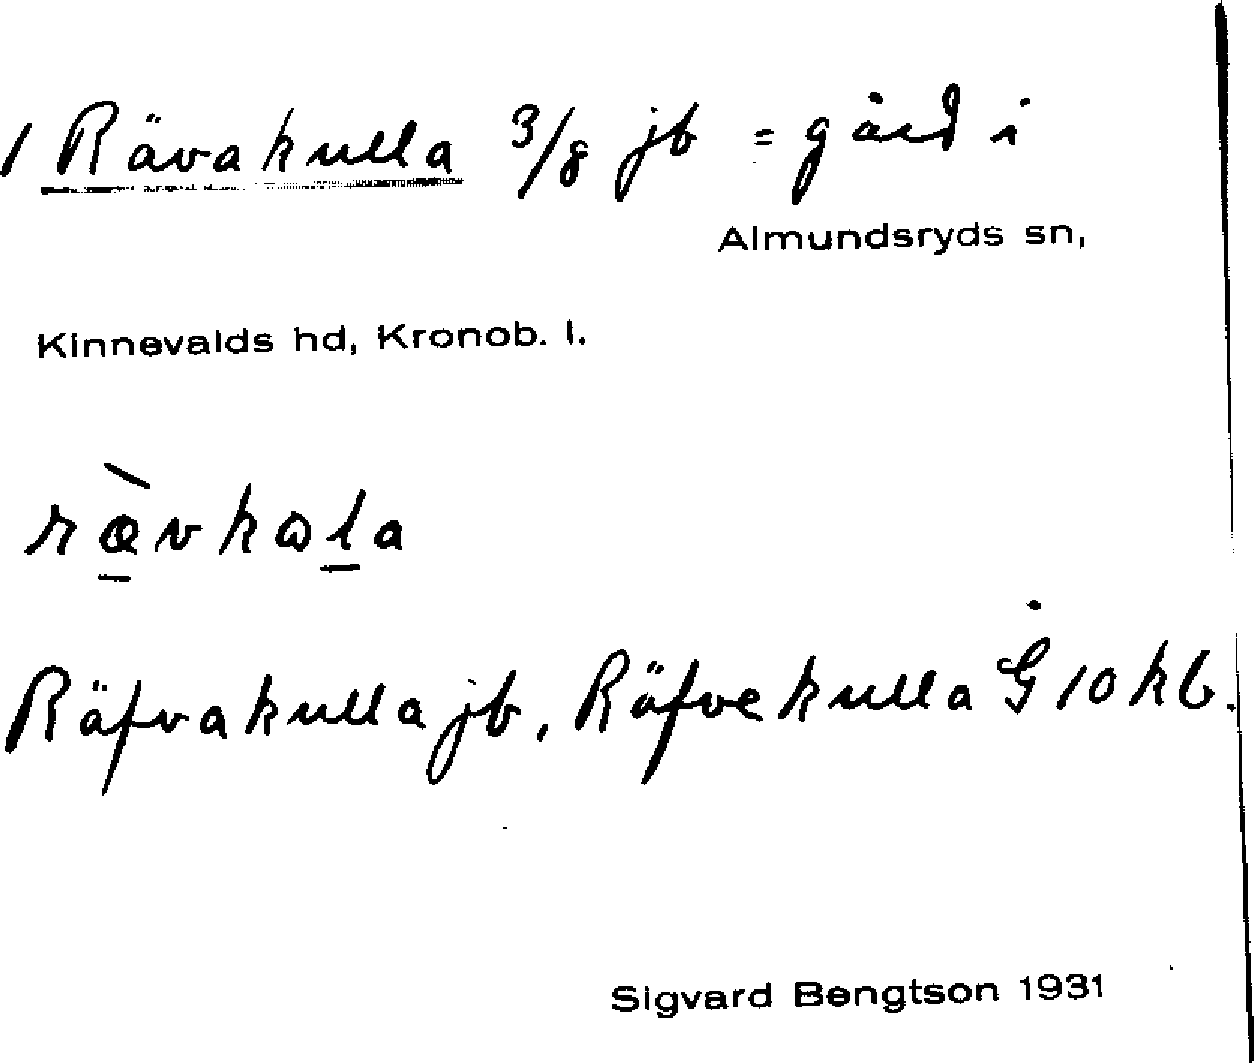 1 Rävakulla 3/8 jb = gård i
Almundsryds sn,
Kinnevalds hd, Kronob. l.
ræ̀vkωla
Räfvakulla jb, Räfvekulla G 10 kb.
Sigvard Bengtson 1931